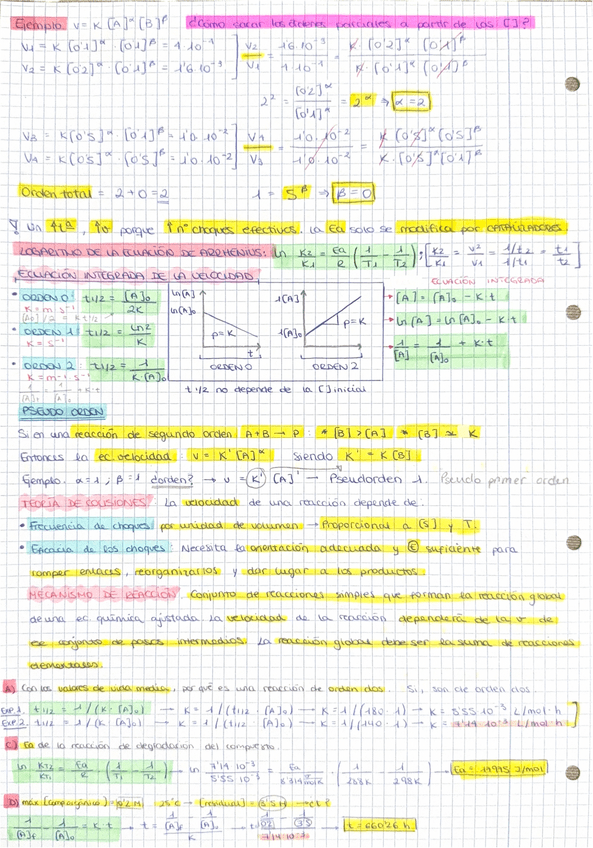 Ejemplo. V = K [A]^α [B]^β ¿Cómo sacar los órdenes parciales a partir de las [ ]?
V1 = K [0'1]^α · [0'1]^β = 4·10^-3 V2 / V1 = 16·10^-3 / 4·10^-3 = K·[0'2]^α [0'1]^β / K·[0'1]^α [0'1]^β
V2 = K [0'2]^α · [0'1]^β = 1'6·10^-3
2^2 = [0'2]^α / [0'1]^α = 2^α ⇒ α = 2
V3 = K [0'5]^α · [0'1]^β = 1'0·10^-2 V4 / V3 = 1'0·10^-2 / 1'0·10^-2 = K [0'5]^α [0'5]^β / K·[0'5]^α [0'1]^β
V4 = K [0'5]^α · [0'5]^β = 1'0·10^-2
Orden total = 2 + 0 = 2 1 = 5^β ⇒ β = 0
Un ↑tª, ↑v porque ↑nº choques efectivos. La Ea solo se modifica por CATALIZADORES.
LOGARITMO DE LA ECUACIÓN DE ARRHENIUS: ln K2/K1 = Ea/R (1/T1 − 1/T2); [K2/K1 = v2/v1 = 1/t2 / 1/t1 = t1/t2]
ECUACIÓN INTEGRADA DE LA VELOCIDAD ECUACIÓN INTEGRADA
• ORDEN 0: t1/2 = [A]0 / 2K ln[A] 1/[A] → [A] = [A]0 − K·t
K = m·s^-1 ln[A]0
[A]0/2 = K·t1/2
• ORDEN 1: t1/2 = ln2 / K p=K 1/[A]0 p=K → ln[A] = ln[A]0 − K·t
K = s^-1 t
• ORDEN 2: t1/2 = 1 / K·[A]0 ORDEN 0 ORDEN 2 → 1/[A] = 1/[A]0 + K·t
K = m^-1·s^-1
t 1/2 no depende de la [ ] inicial
PSEUDO ORDEN
Si en una reacción de segundo orden A+B → P : * [B] > [A] * [B] ≈ K
Entonces la ec. velocidad: v = K' [A]^α siendo K' = K [B]
Ejemplo. α = 1 ; β = 1 ¿orden? → v = K' [A]^1 → Pseudorden 1. Pseudo primer orden
TEORÍA DE COLISIONES: La velocidad de una reacción depende de:
• Frecuencia de choques por unidad de volumen → Proporcional a [S] y T.
• Eficacia de los choques: Necesita la orientación adecuada y E suficiente para
romper enlaces, reorganizarlos y dar lugar a los productos.
MECANISMO DE REACCIÓN. Conjunto de reacciones simples que forman la reacción global
de una ec química ajustada. La velocidad de la reacción dependerá de la v de
ese conjunto de pasos intermedios. La reacción global debe ser la suma de reacciones
elementales.
A) Con los valores de vida media, por qué es una reacción de orden dos. Si, son de orden dos
Exp 1. t1/2 = 1 / (K·[A]0) → K = 1 / (t1/2 · [A]0) → K = 1 / (180·1) → K = 5'55·10^-3 L/mol·h
Exp 2. t1/2 = 1 / (K·[A]0) → K = 1 / (t1/2 · [A]0) → K = 1 / (140·1) → K = 7'14·10^-3 L/mol·h
C) Ea de la reacción de degradación del compuesto.
ln KT2/KT1 = Ea/R (1/T1 − 1/T2) → ln 7'14·10^-3 / 5'55·10^-3 = Ea / 8'314 · (1/288K − 1/298K) → Ea = 17975 J/mol
1/[A]f − 1/[A]0 = K·t → t = 1/[A]f − 1/[A]0 / K → t = 660'26 h